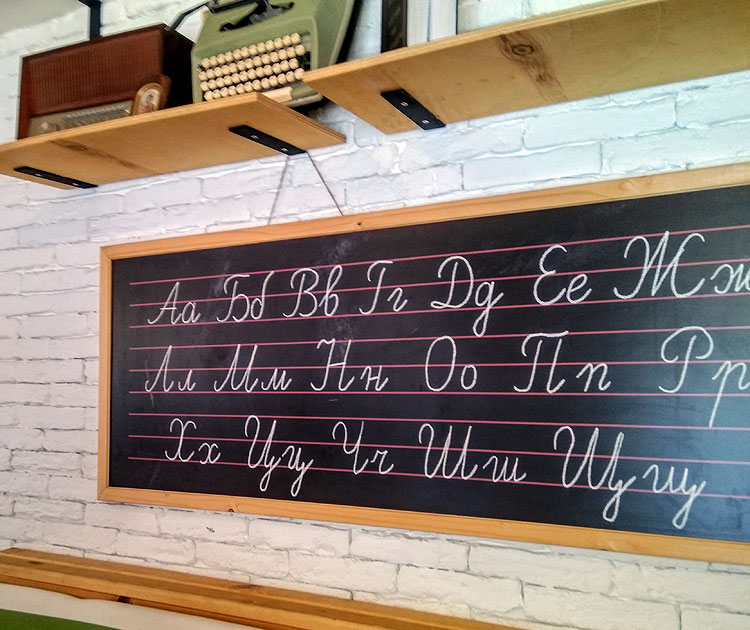 Аа Бб Вв Гг Дд Ее Жж
Лл Мм Нн Оо Пп Рр
Хх Цц Чч Шш Щщ